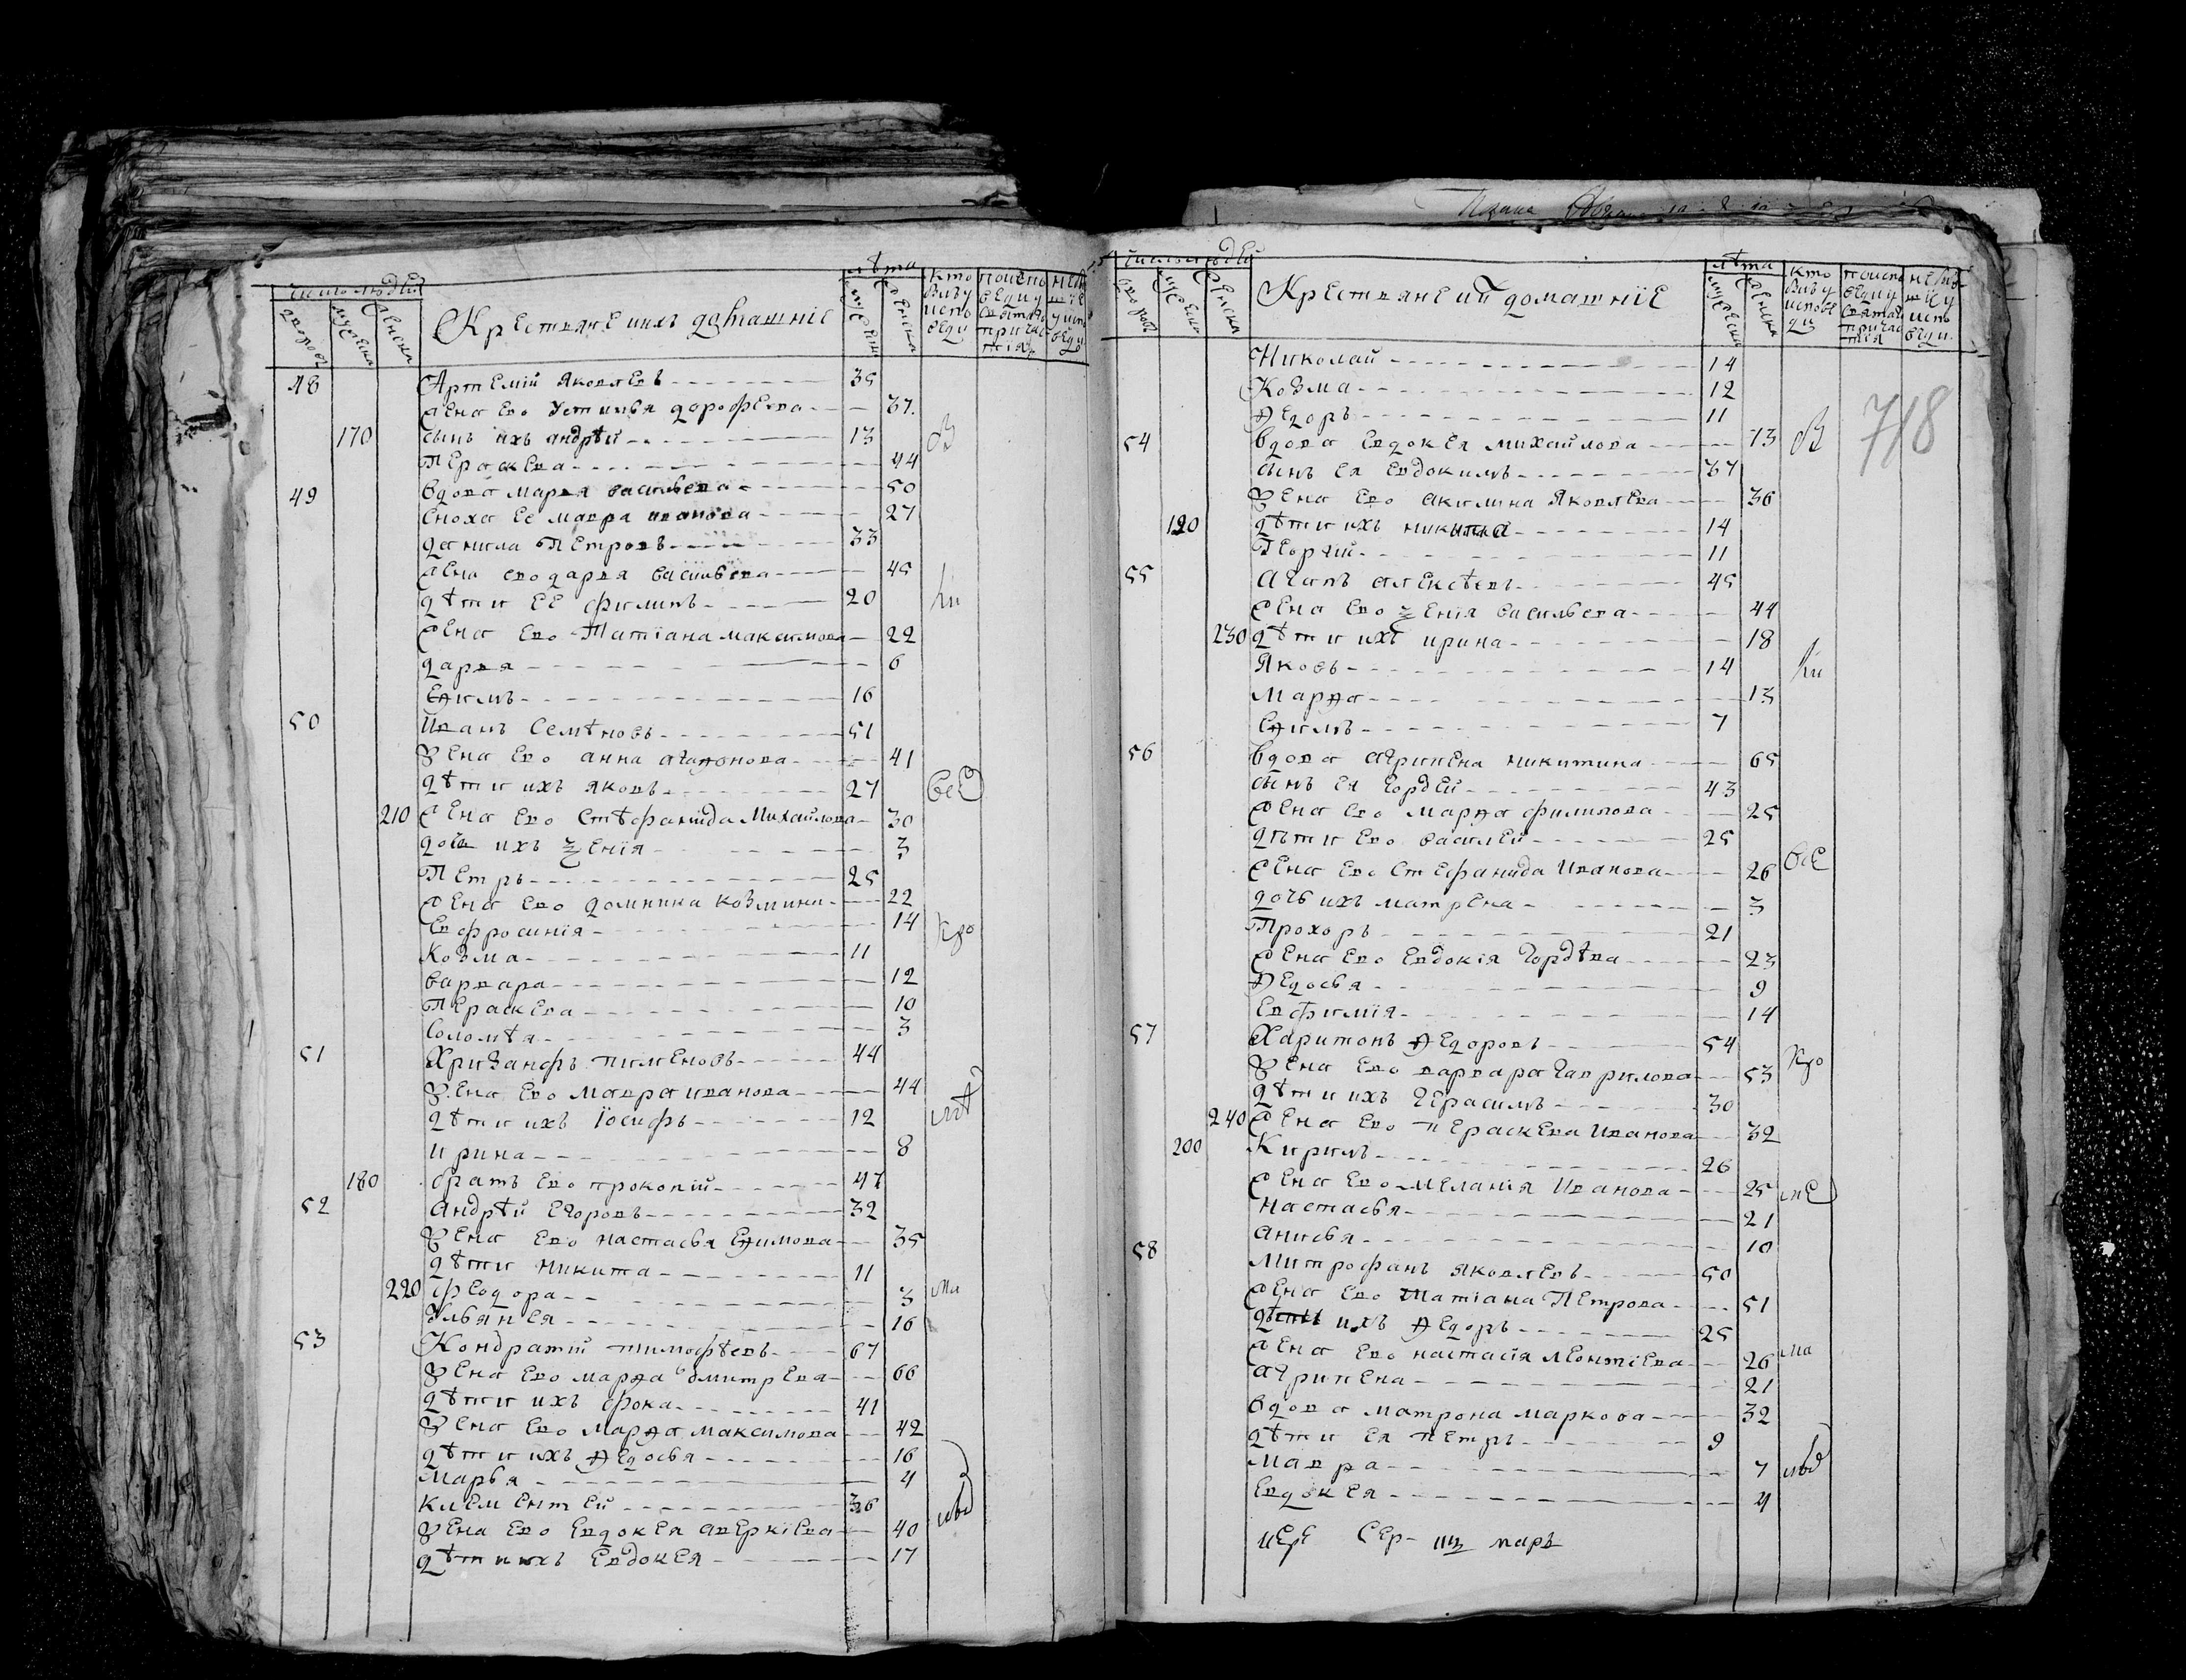 число людей
дворовъ
мужеска
женска
Крестьяне ихъ домашніе
лѣта
мужеска
женска
кто былъ у исповѣди
48 Артемій Яковлевъ 35
жена ево Устинья дорофѣева 37
170 сынъ ихъ андрѣй 13
Пераскева 44
49 вдова марья васильева 50
сноха ее мавра иванова 27
данила Петровъ 33
жена ево дарья васильева 45
дѣти ЕЕ филипъ 20
жена ево Татіана максимова 22
дарья 6
Еѳимъ 16
50 Иванъ Семѣновъ 51
жена ево анна агаѳонова 41
дѣти ихъ яковъ 27
210 жена ево Стѣфанида Михайлова 30
дочь ихъ ѯенія 3
Петръ 25
жена ево домника козмина 22
Евфросинія 14
Козма 11
варвара 12
Пераскева 10
Соломѣя 3
51 Хризанфъ пименовъ 44
жена ево мавра иванова 44
дѣти ихъ іосифъ 12
ирина 8
180 братъ ево прокопій 47
52 андрѣй Егоровъ 32
жена ево настасья Еѳимова 35
дѣти никита 11
220 феодора 3
Ульянея 16
53 Кондратій тимофѣевъ 67
жена ево марѳа дмитрева 66
дѣти ихъ фока 41
жена ево марѳа максимова 42
дѣти ихъ ѳедосья 16
марья 4
клементей 36
жена ево Евдокея аверкіева 40
дѣти ихъ Евдокея 17
число людей
мужеска
женска
Крестьяне ий домашніе
лѣта
мужеска
женска
кто былъ у исповѣди
Николай 14
Козма 12
ѳедоръ 11
718
54 вдова Евдокея михайлова 73
сынъ ея Евдокимъ 37
жена ево акилина Яковлева 36
190 дѣти ихъ никита 14
Георгій 11
55 агапъ алексѣевъ 45
жена ево ѯенія васильева 44
230 дѣти ихъ ирина 18
Яковъ 14
Марѳа 13
Еѳимъ 7
56 вдова агрипена никитина 65
сынъ ея гордей 43
жена ево марѳа филипова 25
дѣти ево василей 25
жена ево Стефанида Иванова 26
дочь ихъ матрена 3
Прохоръ 21
жена ево Евдокія гордѣева 23
ѳедосья 9
Евфимія 14
57 Харитонъ ѳедоровъ 54
жена ево варвара гаврилова 53
дѣти ихъ герасимъ 30
240 жена ево пераскева Иванова 32
200 Кирилъ 26
жена ево меланія Иванова 25
настасья 21
анисья 10
58 Митрофанъ яковлевъ 50
жена ево татіана Петрова 51
дѣти ихъ ѳедоръ 25
жена ево настасія леонтіева 26
агрипена 21
вдова матрона маркова 32
дѣти ея петръ 9
мавра 7
Евдокея 4